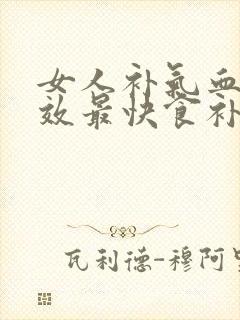 女人补气血
效最快食补
瓦利德-穆阿